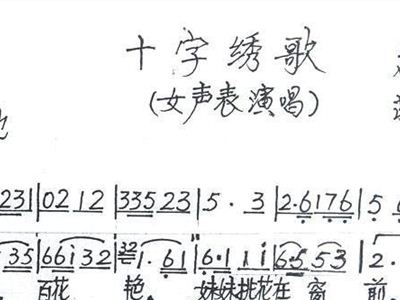 十字绣歌
(女声表演唱)
23|02 12|335 23|5·3|2·6 176|5 6
35|66i 32|32 1·61|6·1 1i|6·5 53|2·
百花 艳, 妹妹挑花在 窗 前